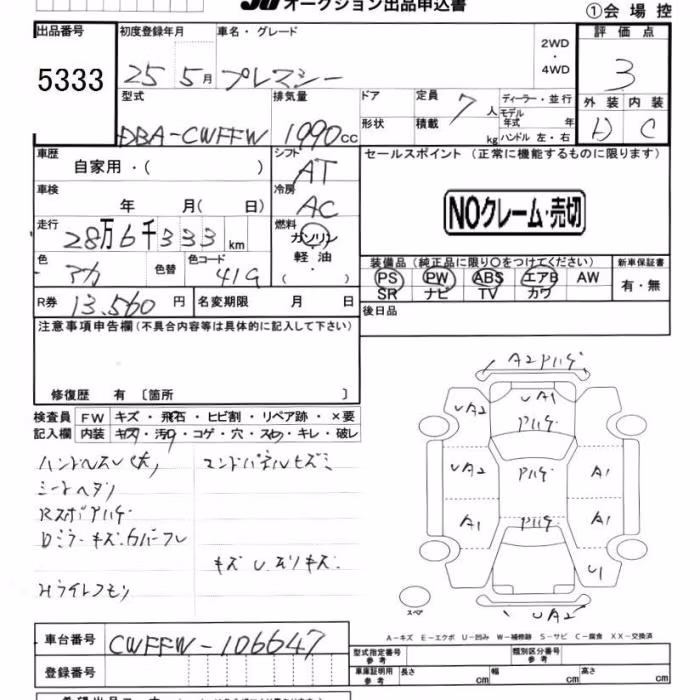 オークション出品申込書
①会場控
出品番号
5333
初度登録年月
25 5月
車名・グレード
プレマシー
2WD
・
4WD
評価点
3
外装 内装
D C
型式
DBA-CWFFW
排気量
1990cc
ドア
形状
定員 7人
積載 kg
ディーラー・並行
モデル年式 年
ハンドル 左・右
車歴
自家用・( )
シフト
AT
セールスポイント(正常に機能するものに限ります)
NOクレーム・売切
車検
年 月( 日)
冷房
AC
走行
28万6千333km
燃料
ガソリン
軽油
( ・ )
色
アカ
色替
色コード
41G
装備品(純正品に限り○をつけてください)
PS PW ABS エアB AW
SR ナビ TV カワ
新車保証書
有・無
R券 13.560円
名変期限 月 日
後日品
注意事項申告欄(不具合内容等は具体的に記入して下さい)
修復歴 有 〔箇所 〕
検査員記入欄
FW キズ・飛石・ヒビ割・リペア跡・×要
内装 キズ・汚れ・コゲ・穴・スレ・キレ・破レ
シートヘタリ
Dミラーキズ.カバーフレ
キズ U.スリキズ.
A2アハゲ
UA2
UA1
アハゲ
UA2
アハゲ
A1
A1
アハゲ
A1
U1
UA2
スペア
A-キズ E-エクボ U-凹み W-補修跡 S-サビ C-腐食 XX-交換済
車台番号
CWFFW-106647
登録番号
型式指定番号
参考
類別区分番号
参考
車庫証明用
参考
長さ cm
幅 cm
高さ cm